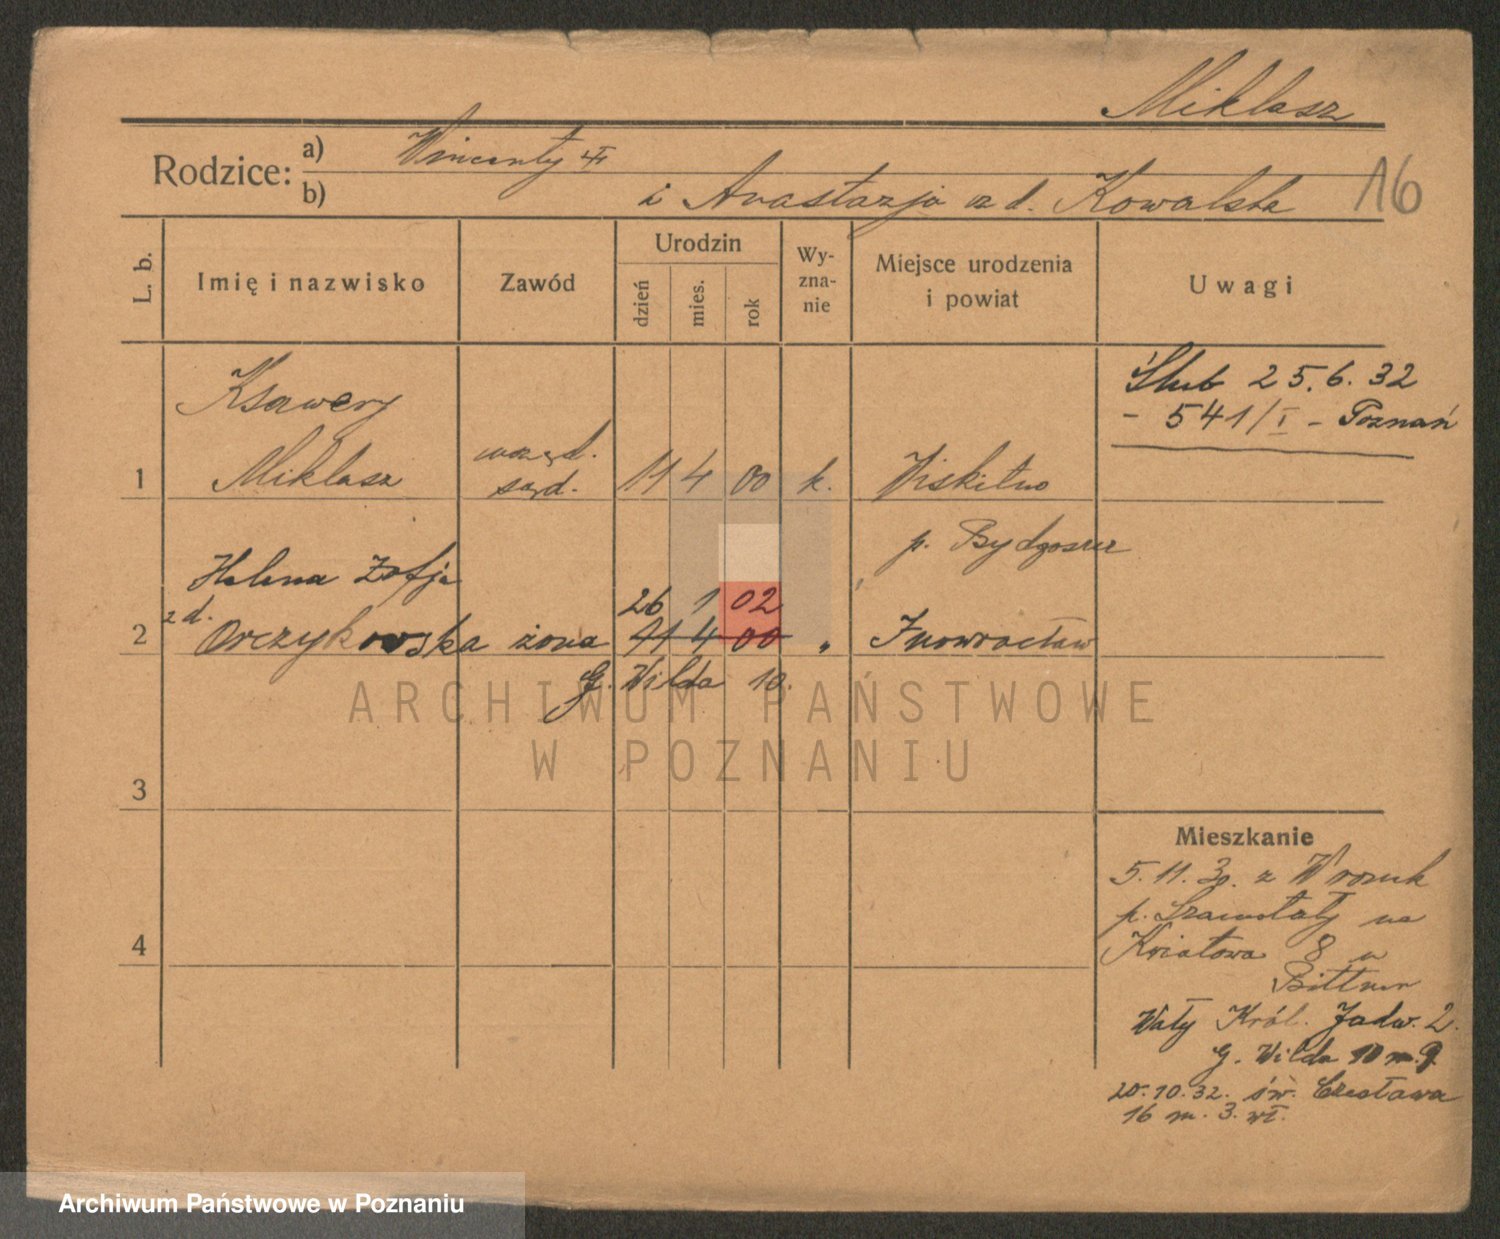 Miklasz
Rodzice: a) Wincenty
b) i Anastazja z d. Kowalska
16
L. b.
Imię i nazwisko
Zawód
Urodzin
dzień
mies.
rok
Wy-
zna-
nie
Miejsce urodzenia
i powiat
Uwagi
Ślub 25.6.32
- 541/I - Poznań
Ksawery
urzęd.
1 Miklasz sąd. 11 4 00 k. Wiskitno
p. Bydgoszcz
Helena Zofja
26 1 02
z d.
2 Orczykowska żona 11 4 00 " Inowrocław
G. Wilda 10.
ARCHIWUM PAŃSTWOWE
W POZNANIU
3
4
Mieszkanie
5.11.30. z Wronek
p. Szamotuły na
Kwiatowa 8 u
Bittner
Wały Król. Jadw. 2.
G. Wilda 10 m. 9
20.10.32. św. Czesława
16 m. 3. wł.
Archiwum Państwowe w Poznaniu